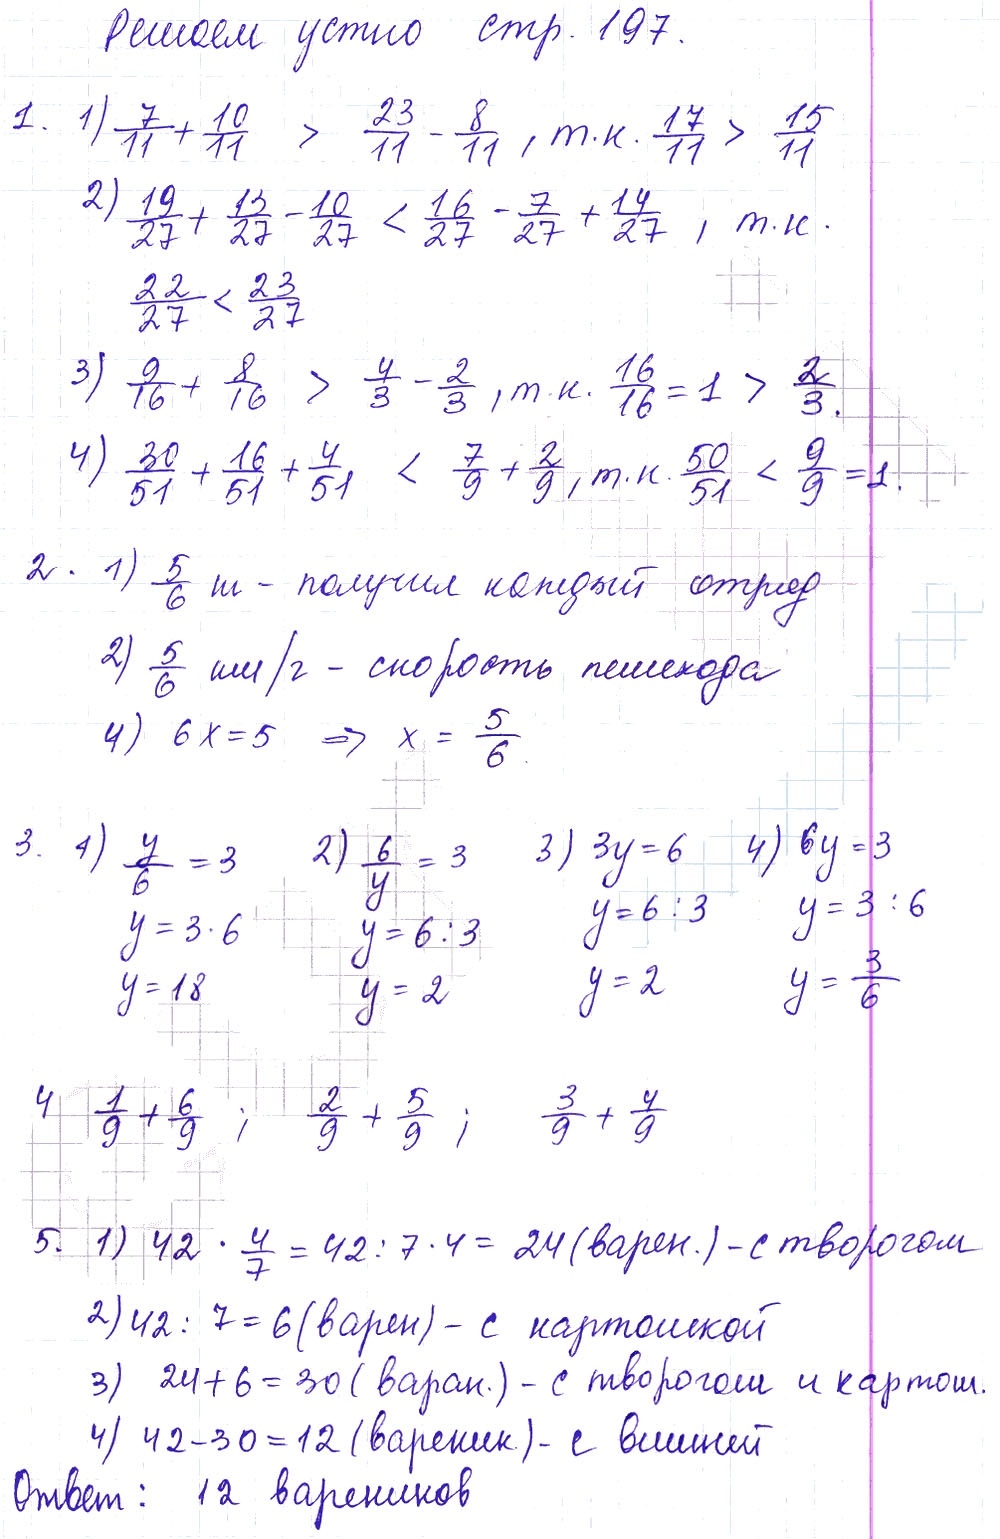 Решаем устно стр. 197.
1. 1) 7/11 + 10/11 > 23/11 - 8/11, т.к. 17/11 > 15/11
2) 19/27 + 13/27 - 10/27 < 16/27 - 7/27 + 14/27, т.к.
22/27 < 23/27
3) 9/16 + 8/16 > 4/3 - 2/3, т.к. 16/16 = 1 > 2/3.
4) 30/51 + 16/51 + 4/51 < 7/9 + 2/9, т.к. 50/51 < 9/9 = 1.
2. 1) 5/6 т - получил каждый отряд
2) 5/6 км/г - скорость пешехода
4) 6x = 5 => x = 5/6.
3. 1) y/6 = 3 2) 6/y = 3 3) 3y = 6 4) 6y = 3
y = 3 · 6 y = 6 : 3 y = 6 : 3 y = 3 : 6
y = 18 y = 2 y = 2 y = 3/6
4 1/9 + 6/9 ; 2/9 + 5/9 ; 3/9 + 4/9
5. 1) 42 · 4/7 = 42 : 7 · 4 = 24 (варен.) - с творогом
2) 42 : 7 = 6 (варен) - с картошкой
3) 24 + 6 = 30 (варан.) - с творогом и картош.
4) 42 - 30 = 12 (вареник.) - с вишней
Ответ: 12 вареников